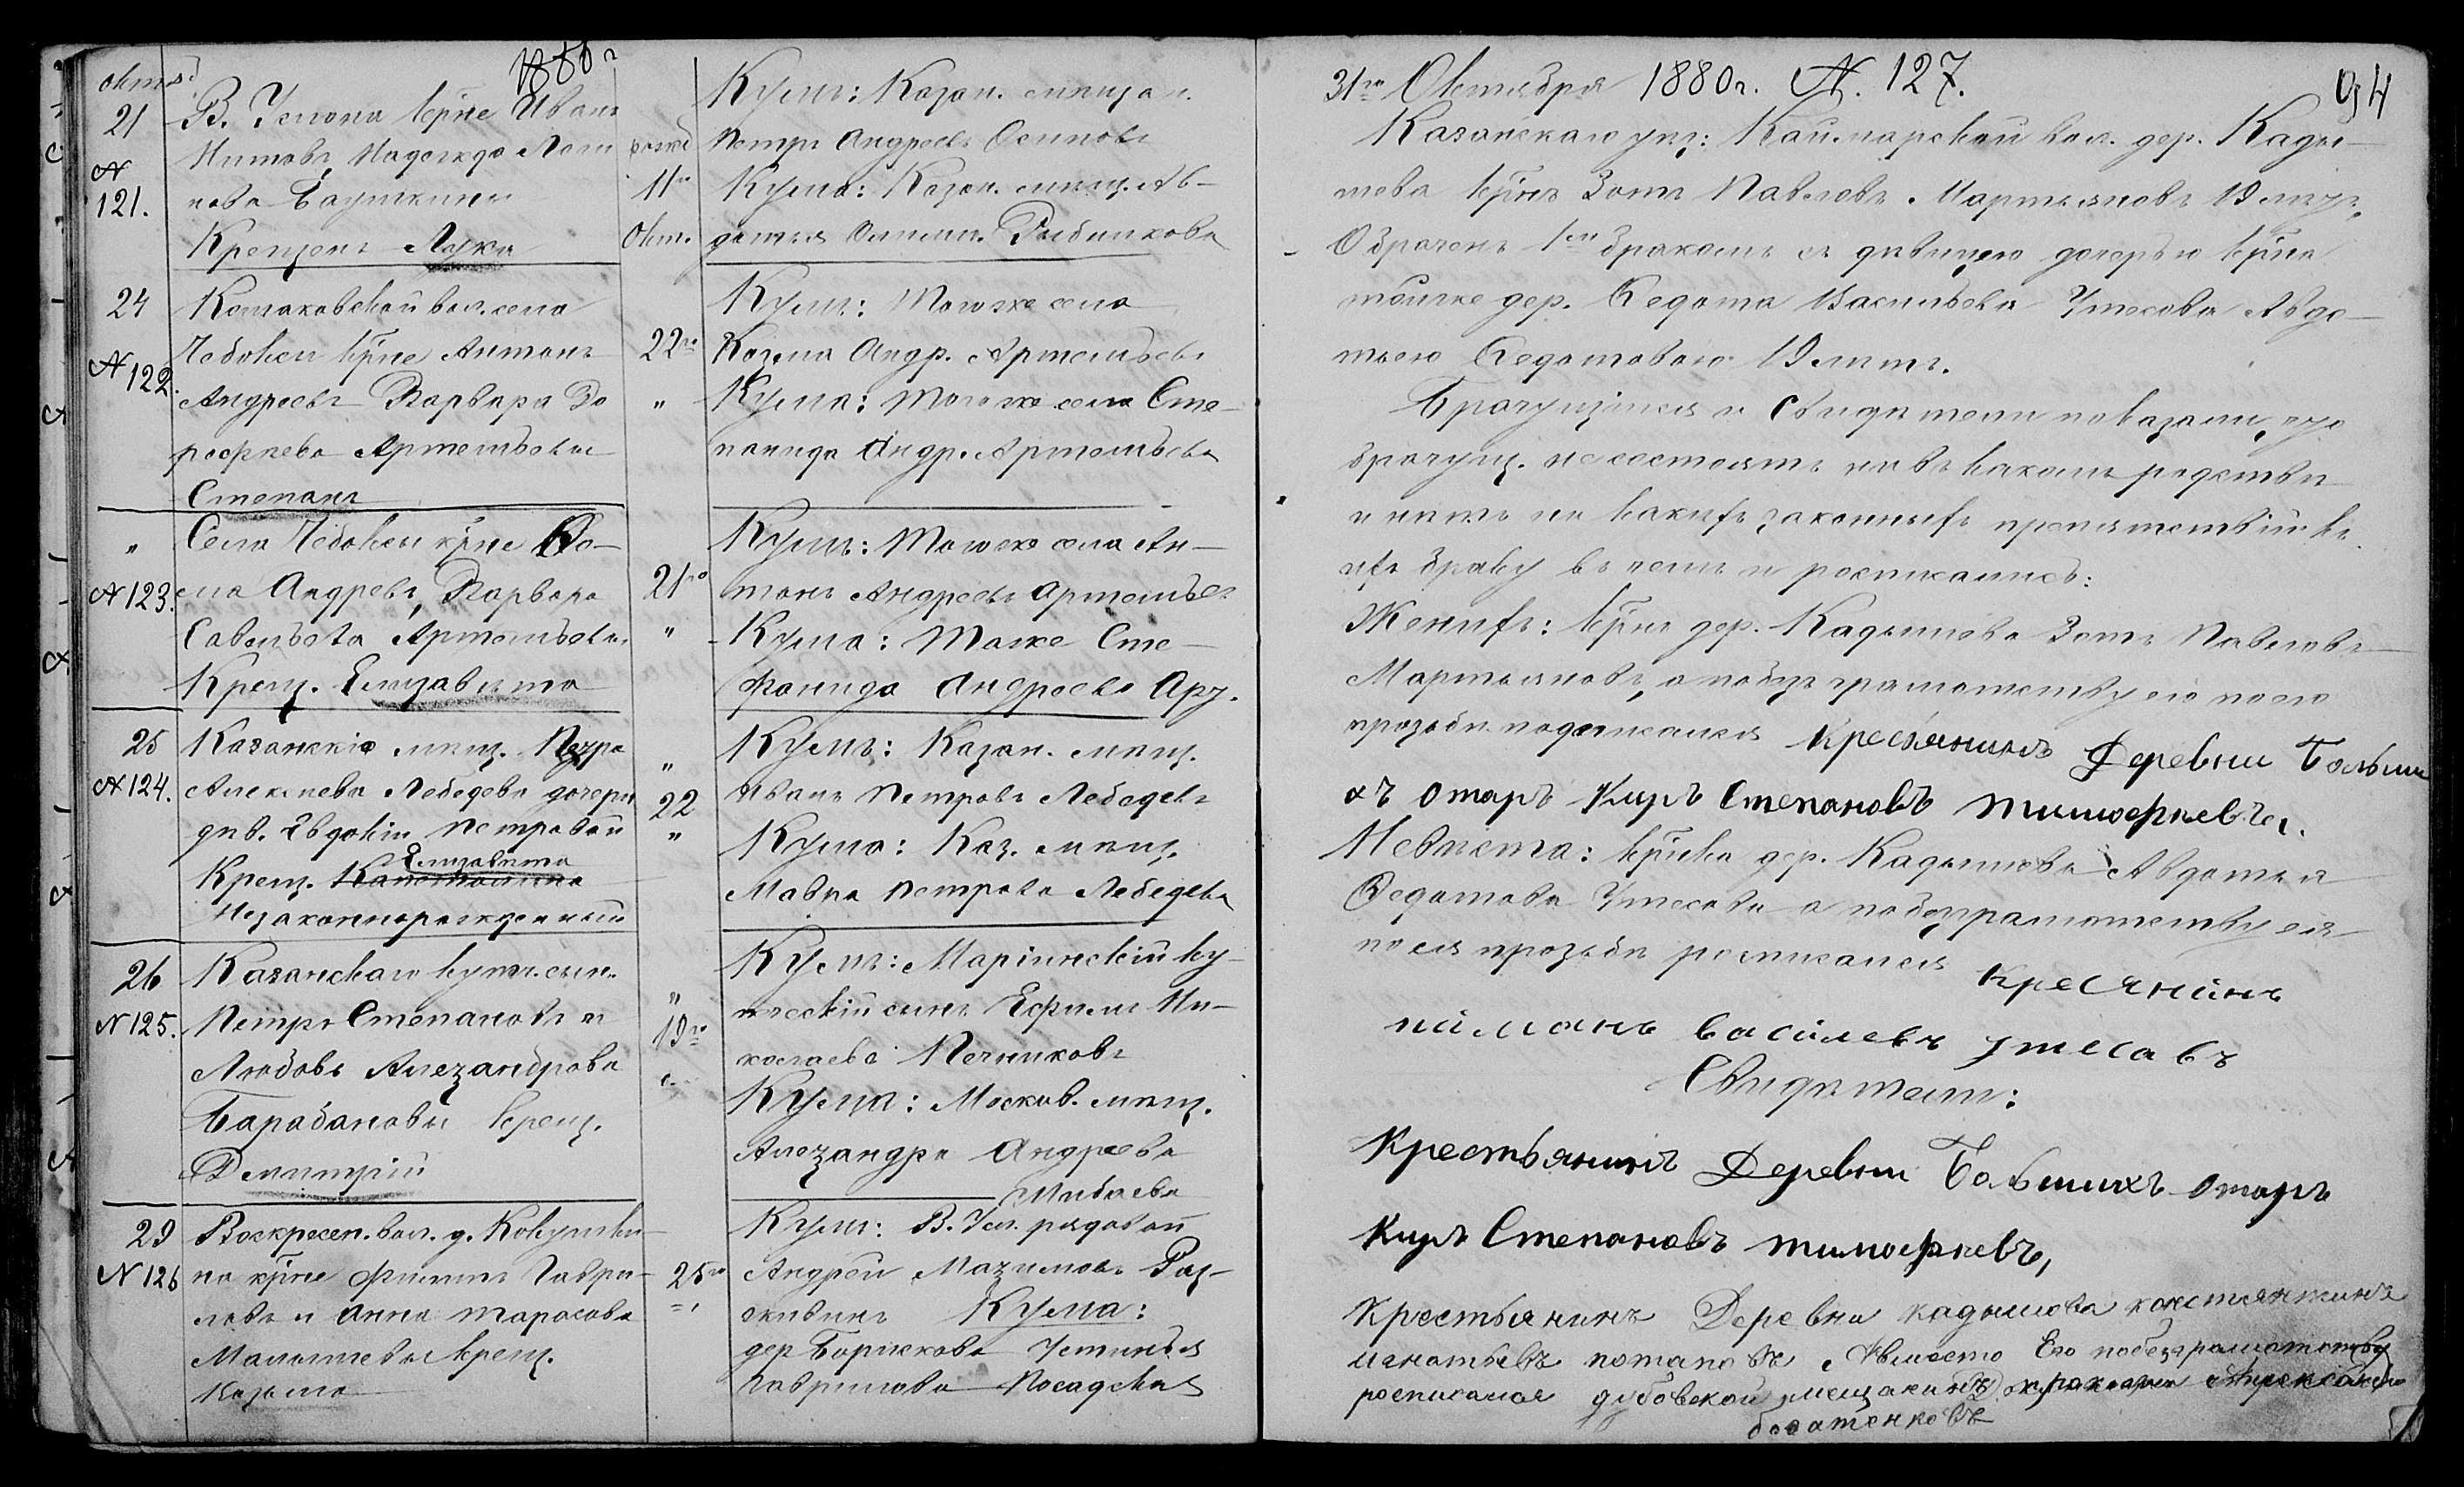 1880г
окт.
21
N
121.
В. Услона кр̃не Иванъ
Титовъ, Надежда Логи
нова Батушкины
Крещенъ Лука
рожд
11го
Окт.
Кумъ: Казан. мѣщан.
Петръ Андреевъ Осиповъ
Кума: Казан. мѣщ. Ав-
дотья Рыбникова
24
N 122.
вол. села
Чебоксы кр̃не Антонъ
Андреевъ Варвара До
рофеева Артемьевы
Степанъ
22го
"
Кумъ: Тогоже села
Козма Андр. Артемьевъ
Кума: Тогоже села Сте-
понида Андр. Артемьева
"
N 123.
Села Чебоксы кр̃не Ко-
ма Андревъ, Варвара
Савельева Артемьевы.
Крещ. Елизавѣта
21го
"
Кумъ: Тогоже села Ан-
тонъ Андреевъ Артемьев
Кума: Тоже Сте-
фонида Андреева Арт.
25
N 124.
Казанскіе мѣщ. Петра
Алексѣева Лебедева дочери
дѣв. Евдокіи Петровой
Елизавѣта
Крещ. Капетолина
Незаконнорожденный
"
22
"
Кумъ: Казан. мѣщ.
Иванъ Петровъ Лебедевъ
Кума: Каз. мѣщ.
Мавра Петрова Лебедева
26
N 125.
Казанскаго купеч. сын.
Петръ Степановъ и
Любовь Александрова
Барабановы крещ.
Дмитрій
"
19го
Кумъ: Маріинскій ку-
пческій сынъ Ефимъ Ни-
колаевъ Печниковъ
Кума: Москов. мѣщ.
Александра Андреева
29
N 126
Воскресен. вол. д. Кокушки-
но кр̃не Филиппъ Гаври-
ловъ и Анна Тарасова
Малышевы крещ.
Козьма
25го
Кумъ: В. Усл. рядовой
Андрей Максимовъ Рас-
Кума:
дер Борисково Устинья
Гаврилова Посадская
94
31го Октября 1880г. N. 127.
Казанскаго уѣз: Каймарской вол. дер. Кады-
шева кр̃нъ Зотъ Павловъ Мартьяновъ 19 лѣтъ,
Обрачень 1мъ бракомъ съ дѣвицею дочерью кр̃на
тойже дер. Ѳедота Васильева Утесова Авдо-
тьею Ѳедотовою 19 лѣтъ.
Брачущіися и Свидѣтели показали, что
брачущ. несостоятъ нивъ какомъ родствѣ
и нѣтъ ни какихъ законныхъ препятствій къ
ихъ браку въ чемъ и росписались:
Женихъ: кр̃нъ дер. Кадышева Зотъ Павловъ
Мартьяновъ, а побезграмотству его поего
прозьбѣ подписался Крестянинъ Деревни Больши
хъ отаръ Киръ Степановъ тимоѳеевъ.
Невѣста: кр̃нка дер. Кадышева Авдотья
Ѳедотова Утесова а побезграмотству ея
поея прозьбѣ росписался Кресянинъ
василевъ утесавъ
Свидѣтели:
Крестьянинъ Деревни Большихъ отаръ
Киръ Степановъ тимоѳеевъ,
Крестьянинъ Деревни кадышова констянтинъ
игнатьевъ потаповъ, Авместо Его побезграмотству
росписался дубовской мещанинъ
богатенковъ